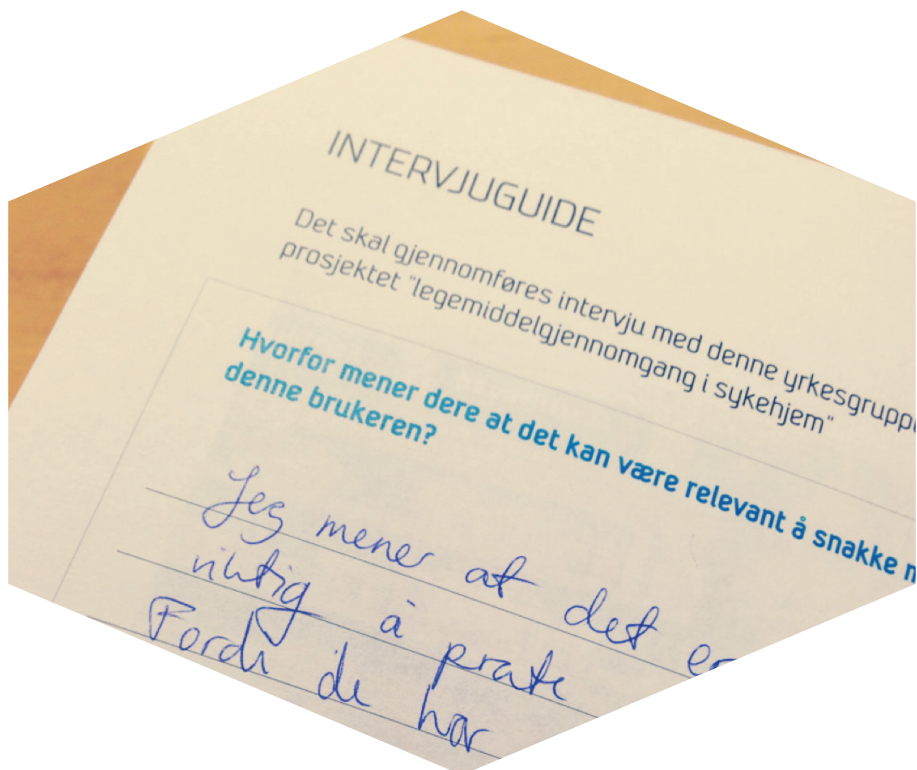 INTERVJUGUIDE
Det skal gjennomføres intervju med denne yrkesgruppe
prosjektet "legemiddelgjennomgang i sykehjem"
Hvorfor mener dere at det kan være relevant å snakke m
denne brukeren?
Jeg mener at det er
viktig å prate
Fordi de har